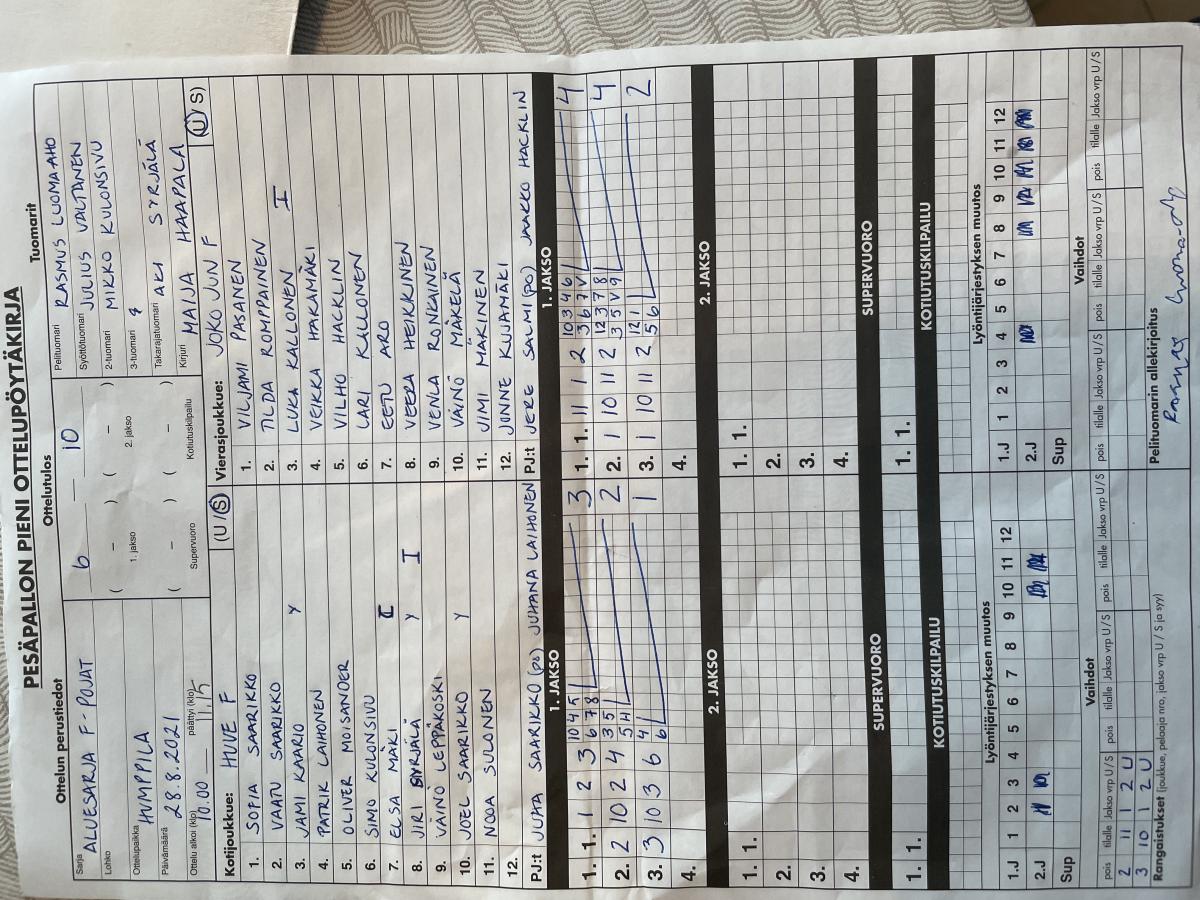 PESÄPALLON PIENI OTTELUPÖYTÄKIRJA
Ottelun perustiedot
Sarja ALUESARJA F-POJAT
Lohko
Ottelupaikka HUMPPILA
Päivämäärä 28.8.2021
Ottelu alkoi (klo) 10.00 päättyi (klo) 11.15
Ottelutulos
6 — 10
( – ) ( – )
1. jakso 2. jakso
( – ) ( – )
Supervuoro Kotiutuskilpailu
Tuomarit
Pelituomari RASMUS LUOMA-AHO
Syöttötuomari JULIUS VALTANEN
2-tuomari MIKKO KULONSIVU
3-tuomari
Takarajatuomari AKI SYRJÄLÄ
Kirjuri MAIJA HAAPALA
Kotijoukkue: HUVE F (U/S)
1. SOFIA SAARIKKO
2. VAATU SAARIKKO
3. JAMI KARIO Y
4. PATRIK LAIHONEN
5. OLIVER MOISANDER
6. SIMO KULONSIVU
7. ELSA MÄKI I
8. JIRI SYRJÄLÄ Y I
9. VÄINÖ LEPPÄKOSKI
10. JOEL SAARIKKO Y
11. NOOA SULONEN
12.
PJ:t JUHA SAARIKKO (PO) JUHANA LAIHONEN
Vierasjoukkue: JOKO JUN F (U/S)
1. VILJAMI PASANEN
2. TILDA ROMPPAINEN
3. LUKA KALLONEN I
4. VEIKKA HAKAMÄKI
5. VILHO HACKLIN
6. LARI KALLONEN
7. EETU ARO
8. VEERA HEIKKINEN
9. VENLA RONKAINEN
10. VÄINÖ MÄKELÄ
11. JIMI MÄKINEN
12. JONNE KUJAMÄKI
PJ:t JERE SALMI (PO) JAAKKO HACKLIN
1. JAKSO
1. 1. 1 2 3 10 4 5 3
6 7 8
2. 2 10 2 4 3 5 2
5 H
3. 3 10 3 6 4 1
6
4.
2. JAKSO
1. 1.
2.
3.
4.
SUPERVUORO
1. 1.
KOTIUTUSKILPAILU
1. JAKSO
1. 1. 11 1 2 10 3 4 6 4
3 6 7 V
2. 1 10 11 2 12 3 7 8 4
3 5 V 9
3. 1 10 11 2 12 1 2
5 6
4.
2. JAKSO
1. 1.
2.
3.
4.
SUPERVUORO
1. 1.
KOTIUTUSKILPAILU
Lyöntijärjestyksen muutos
1.J 1 2 3 4 5 6 7 8 9 10 11 12
2.J
Sup
Lyöntijärjestyksen muutos
1.J 1 2 3 4 5 6 7 8 9 10 11 12
2.J
Sup
Vaihdot
pois tilalle Jakso vrp U/S pois tilalle Jakso vrp U/S pois tilalle Jakso vrp U/S
2 11 1 2 U
3 10 1 2 U
Vaihdot
pois tilalle Jakso vrp U/S pois tilalle Jakso vrp U/S pois tilalle Jakso vrp U/S
Rangaistukset (joukkue, pelaaja nro, jakso vrp U / S ja syy)
Pelituomarin allekirjoitus
Rasmus Luoma-aho